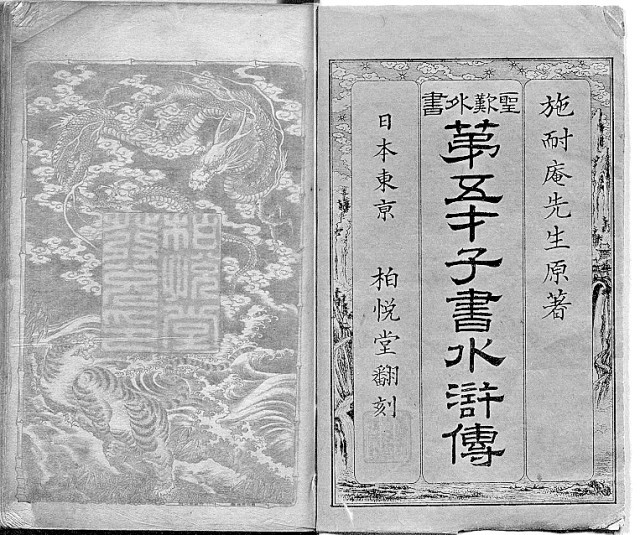 施耐庵先生原著
聖歎外書
第五才子書水滸傳
日本東京　柏悦堂翻刻